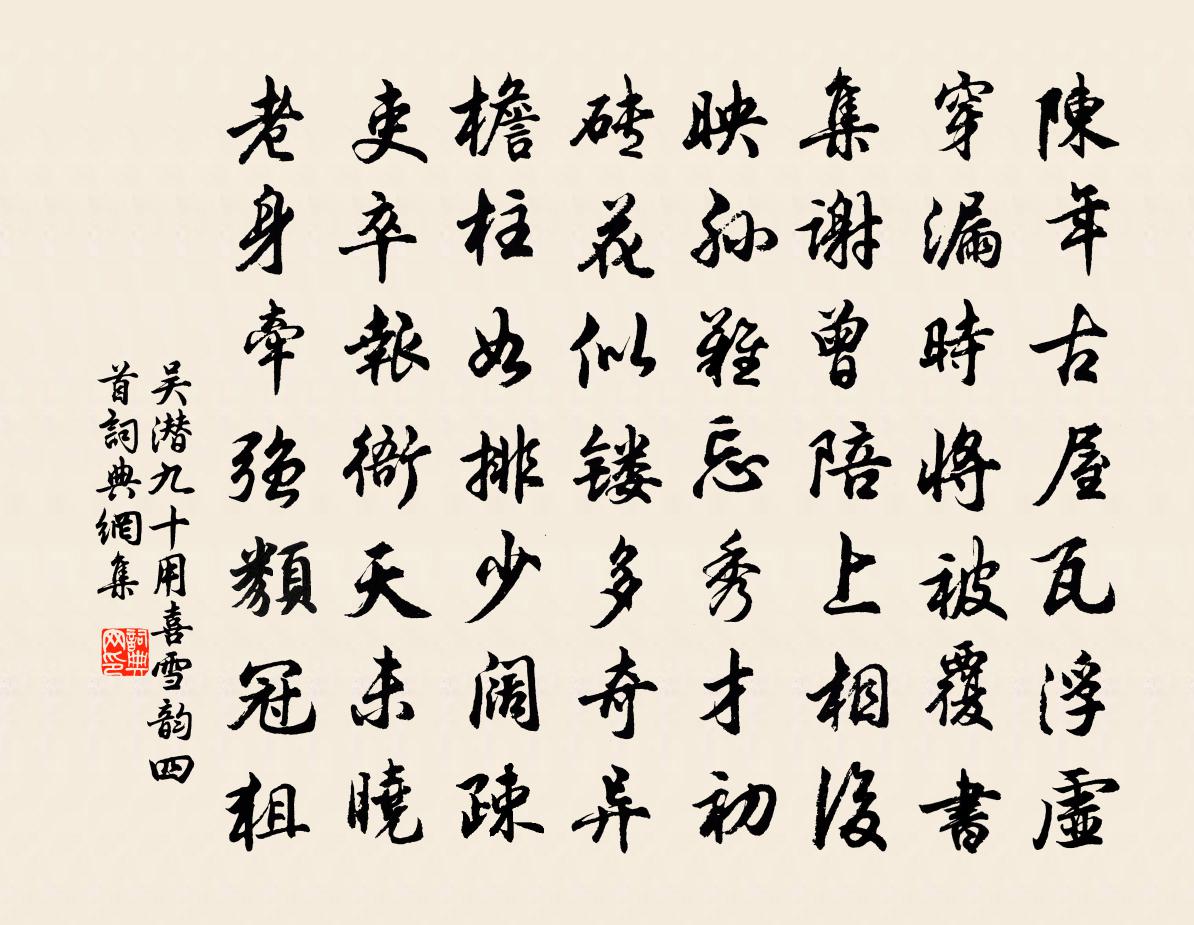 陳年古屋瓦浮虛
穿漏時將被覆書
集謝曾陪上相後
映孫難忘秀才初
磚花似镂多奇异
檐柱如排少阔疎
吏卒報衙天未曉
老身牽强類冠狙
吴潜九十用喜雪韵四
首詞典網集
詞典网印